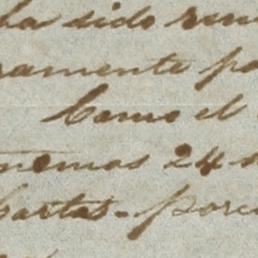 ha sido rem
ramente po
Como el
nemos 24 d
partas - porc